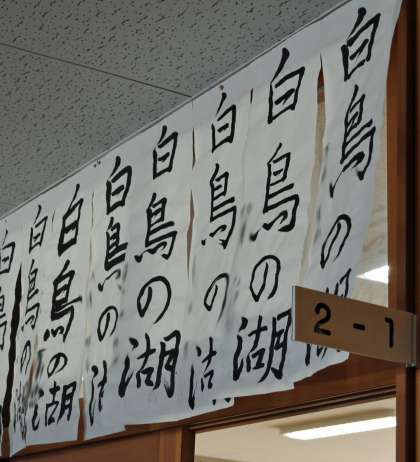 白鳥の湖
白鳥の湖
白鳥の湖
白鳥の湖
白鳥の湖
白鳥の湖
白鳥の湖
白鳥の湖
白鳥
2-1